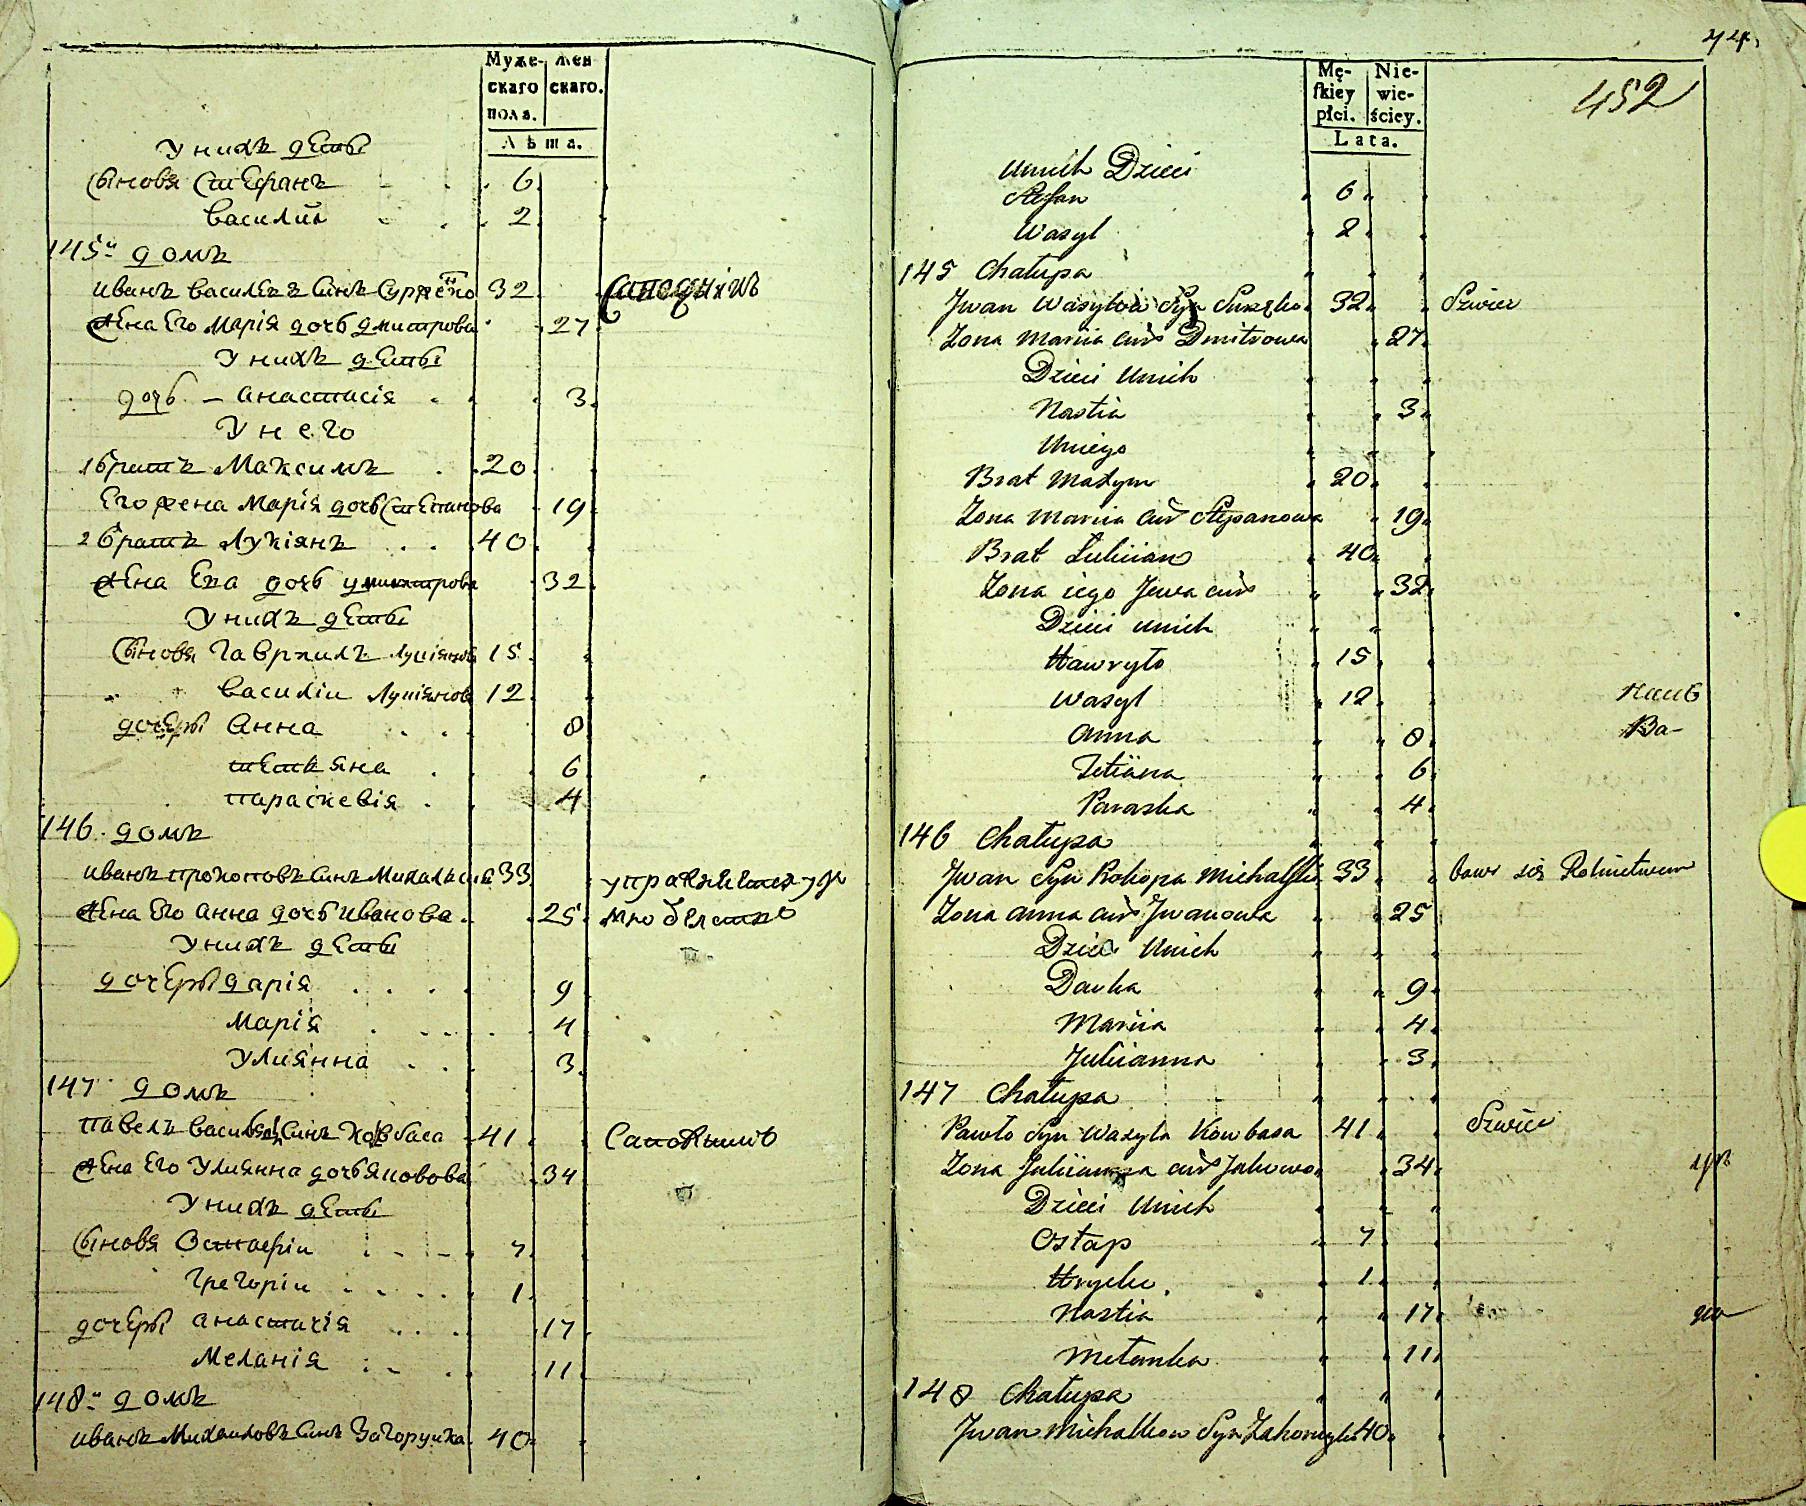 Муже-
скаго
пола.
Жен
скаго.
Лѣта.
У нихъ дѣти
Сыновя Стефанъ 6
Василий 2
145й домъ
Иванъ Василевъ Синъ 32
Жена Его Марія дочь Дмитрова 27
У нихъ дѣти
дочь – Анастасія 3
У него
1 братъ Максимъ 20
Его жена Марія дочь Степанова 19
2 братъ Лукіянъ 40
Жена Ева дочь 32
У нихъ дѣти
Сыновя Гаврилъ Лукіяновъ 15
" " Василіи Лукіяновъ 12
дочеры Анна 8
Тетяна 6
Параскевія 4
146. домъ
Иванъ Прокоповъ Синъ 33
Жена Его Анна дочь Иванова 25
У нихъ дѣти
дочеры Дарія 9
Марія 4
Улиянна 3
147 домъ
Павелъ Синъ Ковбаса 41 Сапожникъ
Жена Его Улиянна дочь Яковова 34
У нихъ дѣти
Сыновя Остафіи 7
Григоріи 1
дочеры Анастасія 17
Меланія 11
148й домъ
Иванъ Михаиловъ Синъ 40
74.
452
Mę-
skiey
płci.
Nie-
wie-
ściey.
Lata.
Unich Dzieci
Stefan 6
Wasyl 2
145 Chałupa
Jwan Wasylów Syn 32 Szwiec
Zona Maria Dmitrowa 27
Dzieci Unich
Nastia 3
Uniego
Brat Maxym 20
Zona Maria Stepanowa 19
Brat Lukiian 40
Zona iego Jewa 32
Dzieci Unich
Hawryło 15
Wasyl 12
Anna 8
Ва-
Tetiana 6
Paraska 4
146 Chałupa
Jwan Syn Prokopa 33 bawi się Rolnictwem
Zona Anna Jwanowa 25
Dzieci Unich
Darka 9
Mariia 4
Juliianna 3
147 Chałupa
Pawło Syn Wasyla Kowbasa 41 Szwiec
Zona Juliianna 34
Dzieci Unich
Ostap 7
Hrycko 1
Nastia 17
Mełanka 11
148 Chałupa
Jwan Michałkow Syn 40